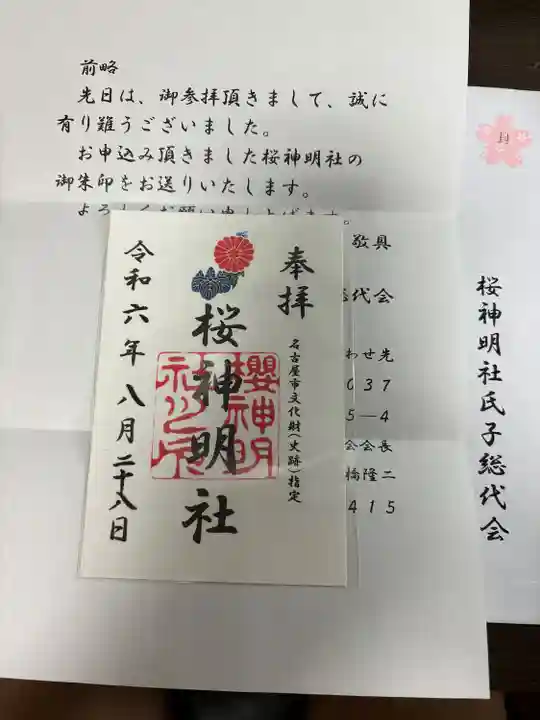 前略
先日は、御参拝頂きまして、誠に
有り難うございました。
お申込み頂きました桜神明社の
御朱印をお送りいたします。
よろしくお願い申し上げます。
敬具
代会
わせ先
037
5—4
会会長
橋隆二
415
奉拝
名古屋市文化財(史跡)指定
桜神明社
櫻神明
令和六年八月二十八日
封
桜神明社氏子総代会